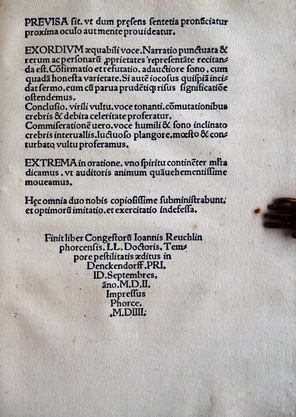 PREVISA sit. vt dum præsens sentētia pronūciatur
proxima oculo aut mente prouideatur.
EXORDIVM æquabili voce. Narratio punctuata &
rerum ac personarū, ,pprietates repræsentāte recitan-
da est. Cōfirmatio et refutatio. adauctiore sono, cum
quadā honesta varietate. Si autē iocosus quispiā inci-
dat sermo. eum cū parua prudētiq; risus significatiōe
ostendemus.
Conclusio. virili vultu. voce tonanti. cōmutationibus
crebris & debita celeritate proferatur.
Commiseratione uero. voce humili & sono inclinato
crebris interuallis. luctuoso plangore. mœsto & con-
turbato vultu profamur.
EXTREMA in oratione. vno spiritu continēter
dicamus. vt auditoris animum quāuehementissime
moueamus.
Hęc omnia duo nobis copiosissime subministrabunt.
et optimorū imitatio. et exercitatio indefessa.
Finit liber Congestorū Ioannis Reuchlin
phorcensis. LL. Doctoris. Tem-
pore pestilitatis æditus in
Denckendorff. PRI.
ID. Septembres.
āno. M.D.II.
Impressus
Phorce.
.M.DIIII.